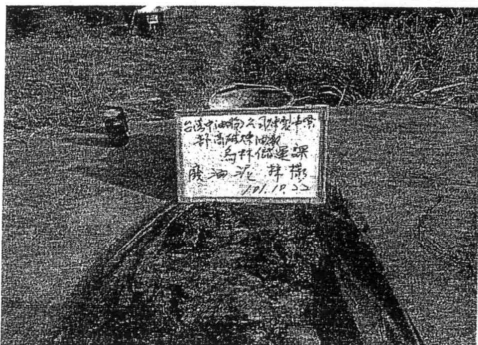 台湾中油(股)公司煉製事業
部高雄煉油廠
烏林儲運課
廢油泥採樣
101.10.22